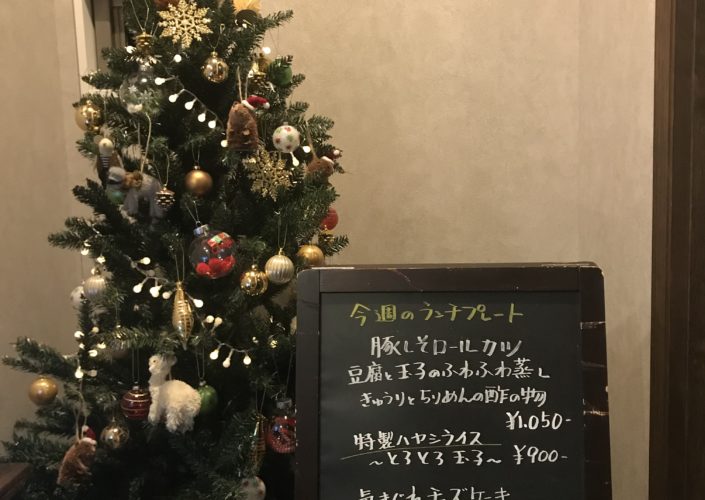 今週のランチプレート
豚しそロールカツ
豆腐と玉子のふわふわ蒸し
きゅうりとちりめんの酢の物
¥1,050-
特製ハヤシライス
～とろとろ玉子～ ¥900-
気まぐれチーズケーキ